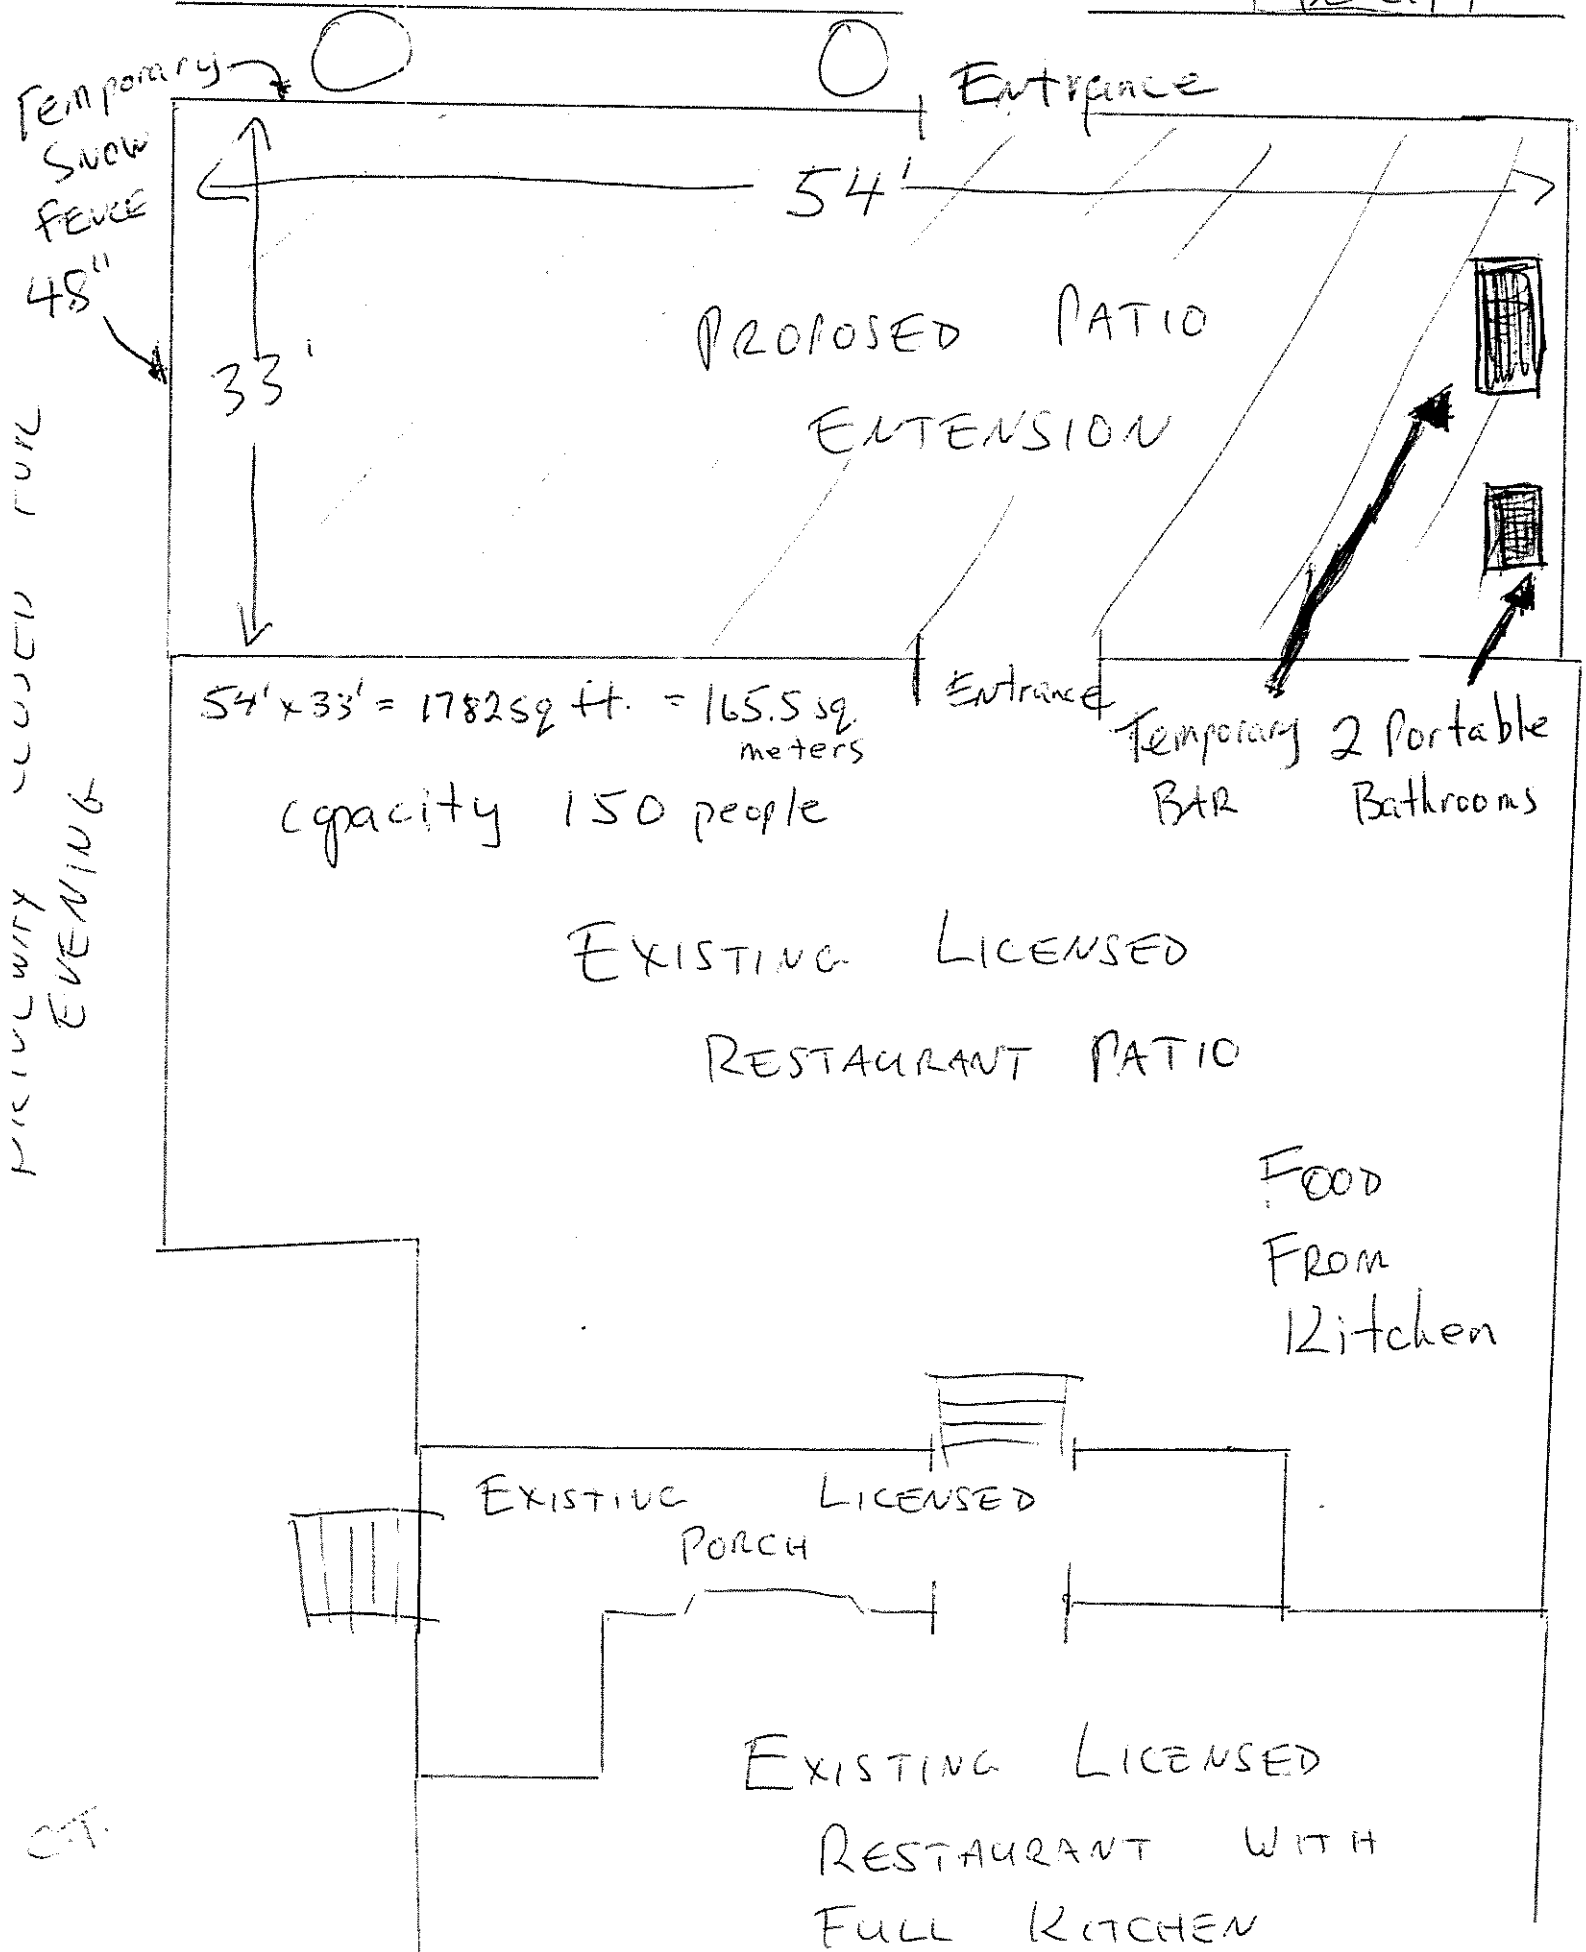 Entrance
Temporary
SNOW
FENCE
48"
54'
33'
PROPOSED PATIO
ENTENSION
54' x 33' = 1782 sq ft. = 165.5 sq.
meters
capacity 150 people
Entrance
Temporary
BAR
2 Portable
Bathrooms
EVENING
EXISTING LICENSED
RESTAURANT PATIO
FOOD
FROM
Kitchen
EXISTING LICENSED
PORCH
EXISTING LICENSED
RESTAURANT WITH
FULL KITCHEN